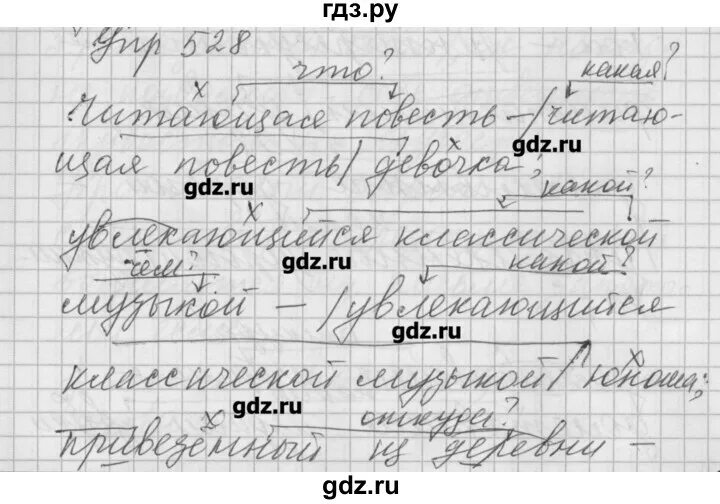 гдз.ру
Упр 528
что? какая?
Читающая повесть – /читаю-
gdz.ru
щая повесть/ девочка;
gdz.ru
какой?
увлекающийся классической
gdz.ru
чем? какой?
музыкой – /увлекающийся
gdz.ru
классической музыкой/ юноша;
gdz.ru
откуда?
привезённый из деревни –
gdz.ru gdz.ru